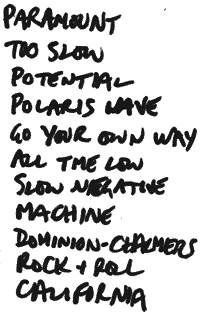 PARAMOUNT
TOO SLOW
POTENTIAL
POLARIS WAVE
GO YOUR OWN WAY
ALL THE LOW
SLOW NEGATIVE
MACHINE
DOMINION-CHALMERS
ROCK + ROLL
CALIFORNIA